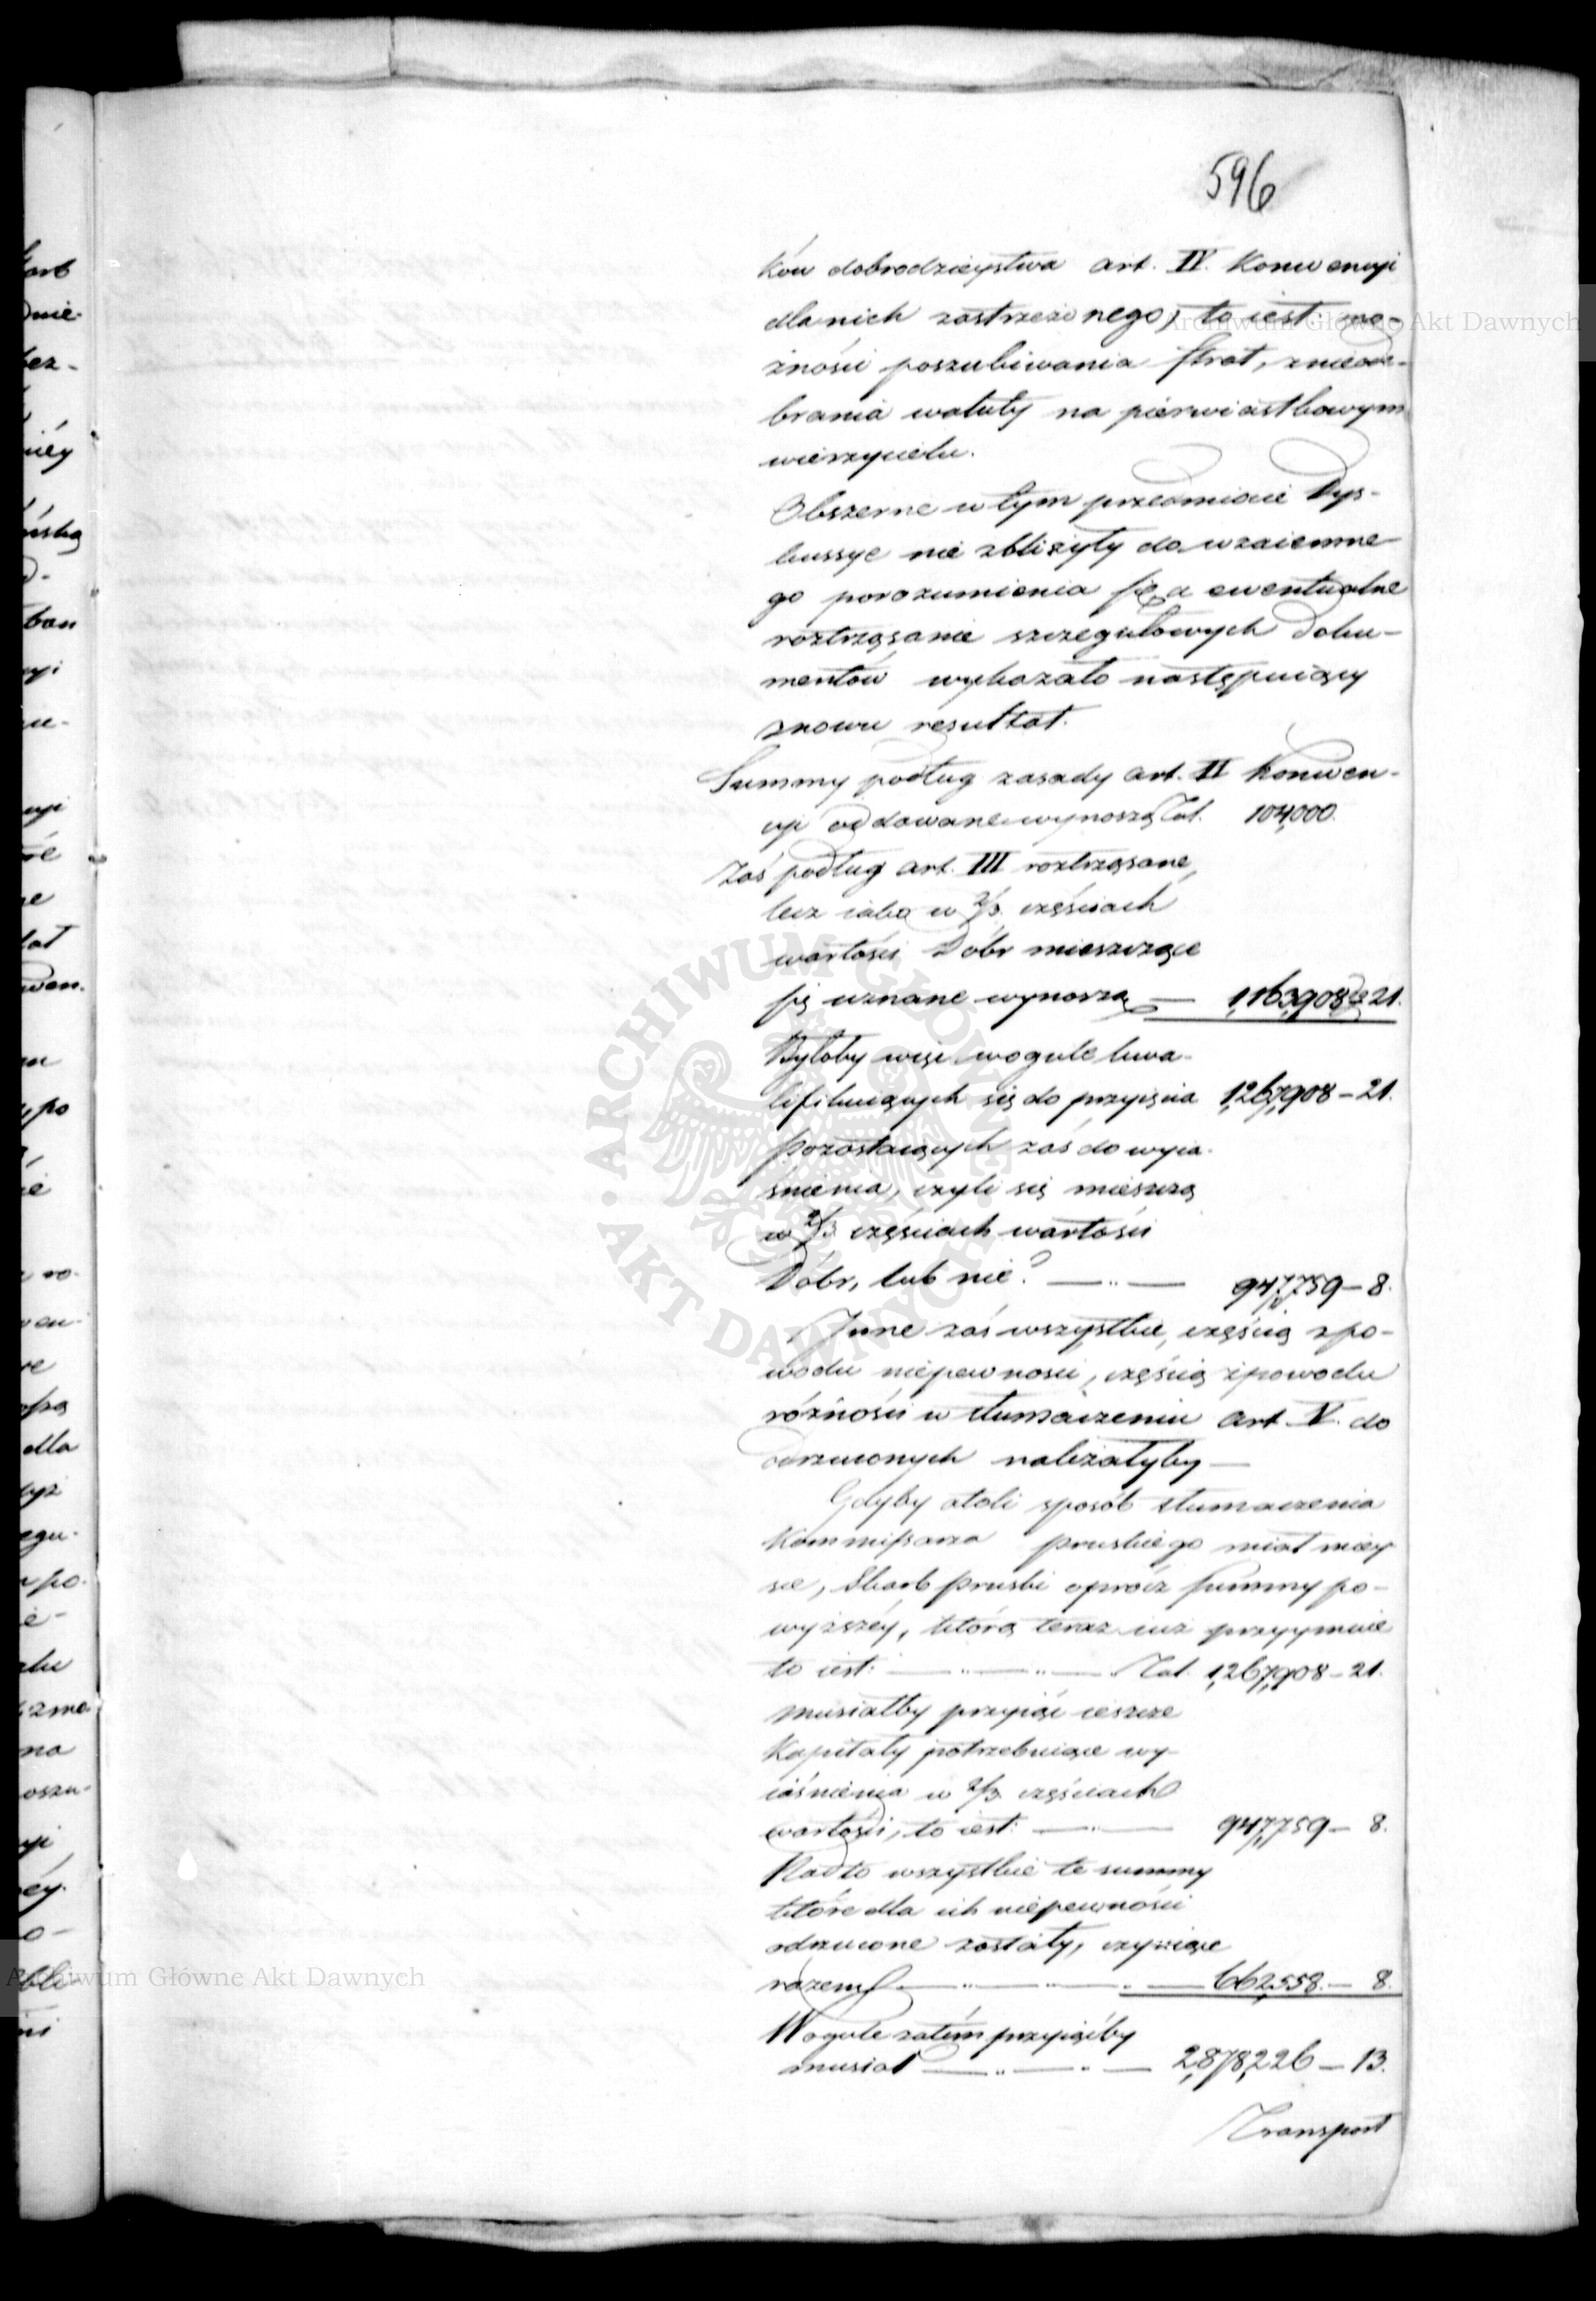 596
ków dobrodzieystwa art. IV. Konwencyi
dla nich zastrzeżonego, to iest: mo-
żności poszukiwania strat, z nieode-
brania waluty na pierwiastkowym
wierzycielu.
Obszerne w tym przedmiocie Dys-
kussye nie zbliżyły do wzaiemne-
go porozumienia się, a ewentualne
roztrząsanie szczegułowych Doku-
mentów wykazało następuiący
znowu resultat.
Summy podług zasady art. II Konwen-
cyi oddawane wynoszą Tal. 104,000.
Zaś podług art. III roztrząsane,
lecz iako w 2/3 częściach
wartości Dóbr mieszczące
się uznane wynoszą — 1,163,908 21.
Byłoby więc wogule kwa-
lifikuiących się do przyięcia 1,267,908 – 21.
pozostaiących zaś do wyia-
śnienia, czyli się mieszczą
w 2/3 częściach wartości
Dóbr, lub nie? — " — 947,759 – 8.
Inne zaś wszystkie, częścią z po-
wodu niepewności, częścią z powodu
różności w tłumaczeniu art. V. do
odrzuconych należałyby —
Gdyby atoli sposób tłumaczenia
Kommissarza pruskiego miał miey-
sce, Skarb pruski oprócz summy po-
wyższéy, którą teraz iuż przyymuie
to iest: — " — " — Tal. 1,267,908 – 21.
musiałby przyiąć ieszcze
Kapitały potrzebuiące wy-
iaśnienia w 2/3 częściach
wartości, to iest: — " — 947,759 – 8.
Nadto wszystkie te summy
które dla ich niepewności
odrzucone zostały, czyniące
razem — " — " — " — 662,558. – 8.
Wogule zatém przyiąćby
musiał — " — " — 2,878,226 – 13.
Transport
Archiwum Główne Akt Dawnych
Archiwum Główne Akt Dawnych
ARCHIWUM GŁÓWNE AKT DAWNYCH